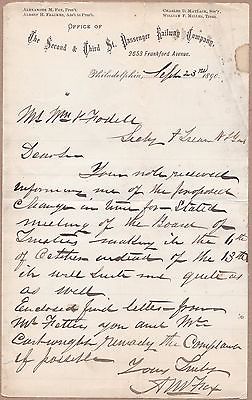 ALEXANDER M. FOX, Pres't.
CHARLES D. MATLACK, Sec'y
WILLIAM F. MILLER, Treas.
OFFICE OF
The Second & Third St. Passenger Railway Company,
2653 Frankford Avenue.
Philadelphia, Sept 23rd 1890.
Mr Wm H
Secty & Treas
Dear Sir
Your note received
informing me of the proposed
change in time for Stated
meeting of the Board of
Trustees making it the 6th
of October instead of the 13th
it will suit me quite as
as well
Enclosed find letter from
Mr you and Mr
Cartwright remedy the Complaint
if possible
Yours Truly
A M Fox